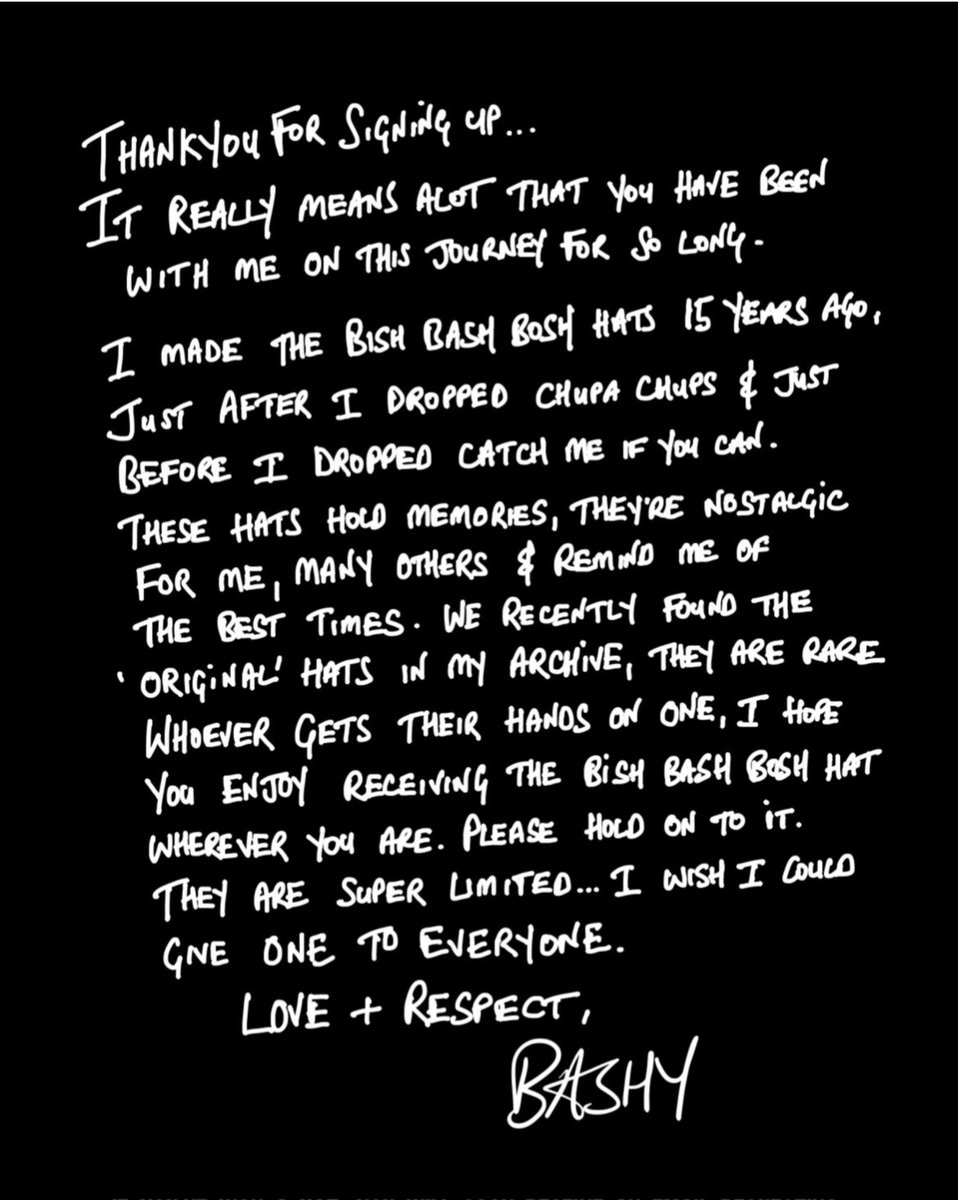 THANKYOU FOR SIGNING UP...
IT REALLY MEANS ALOT THAT YOU HAVE BEEN
WITH ME ON THIS JOURNEY FOR SO LONG.
I MADE THE BISH BASH BOSH HATS 15 YEARS AGO,
JUST AFTER I DROPPED CHUPA CHUPS & JUST
BEFORE I DROPPED CATCH ME IF YOU CAN.
THESE HATS HOLD MEMORIES, THEY'RE NOSTALGIC
FOR ME, MANY OTHERS & REMIND ME OF
THE BEST TIMES. WE RECENTLY FOUND THE
'ORIGINAL' HATS IN MY ARCHIVE, THEY ARE RARE
WHOEVER GETS THEIR HANDS ON ONE, I HOPE
YOU ENJOY RECEIVING THE BISH BASH BOSH HAT
WHEREVER YOU ARE. PLEASE HOLD ON TO IT.
THEY ARE SUPER LIMITED... I WISH I COULD
GIVE ONE TO EVERYONE.
LOVE + RESPECT,
BASHY